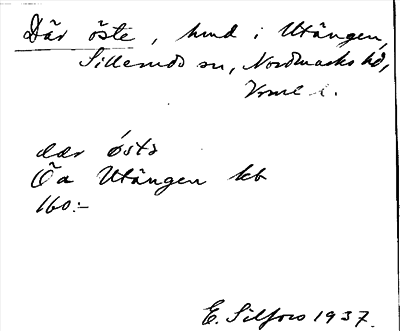 Där öste, hmd i Utängen,
Sillerud sn, Nordmarks hd,
Vrml l.
dær östə
Öa Utängen kb
160:-
E. Silfors 1937.